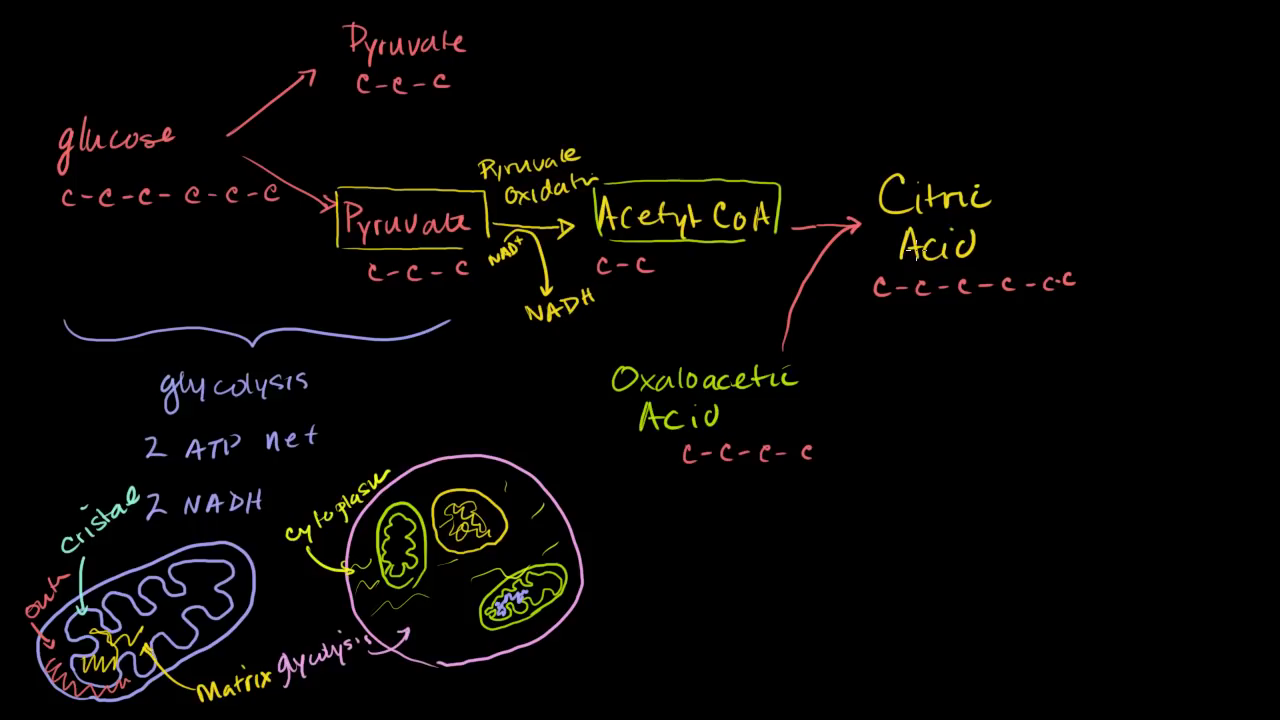 Pyruvate
C-C-C
glucose
C-C-C-C-C-C
Pyruvate
C-C-C
Pyruvate
Oxidati
NAD+
NADH
Acetyl CoA
C-C
Citric
Acid
C-C-C-C-C-C
Oxaloacetic
Acid
C-C-C-C
glycolysis
2 ATP net
2 NADH
cristae
outr
Matrix
cytoplasm
glycolysis